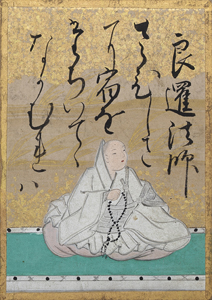 良暹法師
さひしさ
に宿を
たちいてゝ
なかむれハ